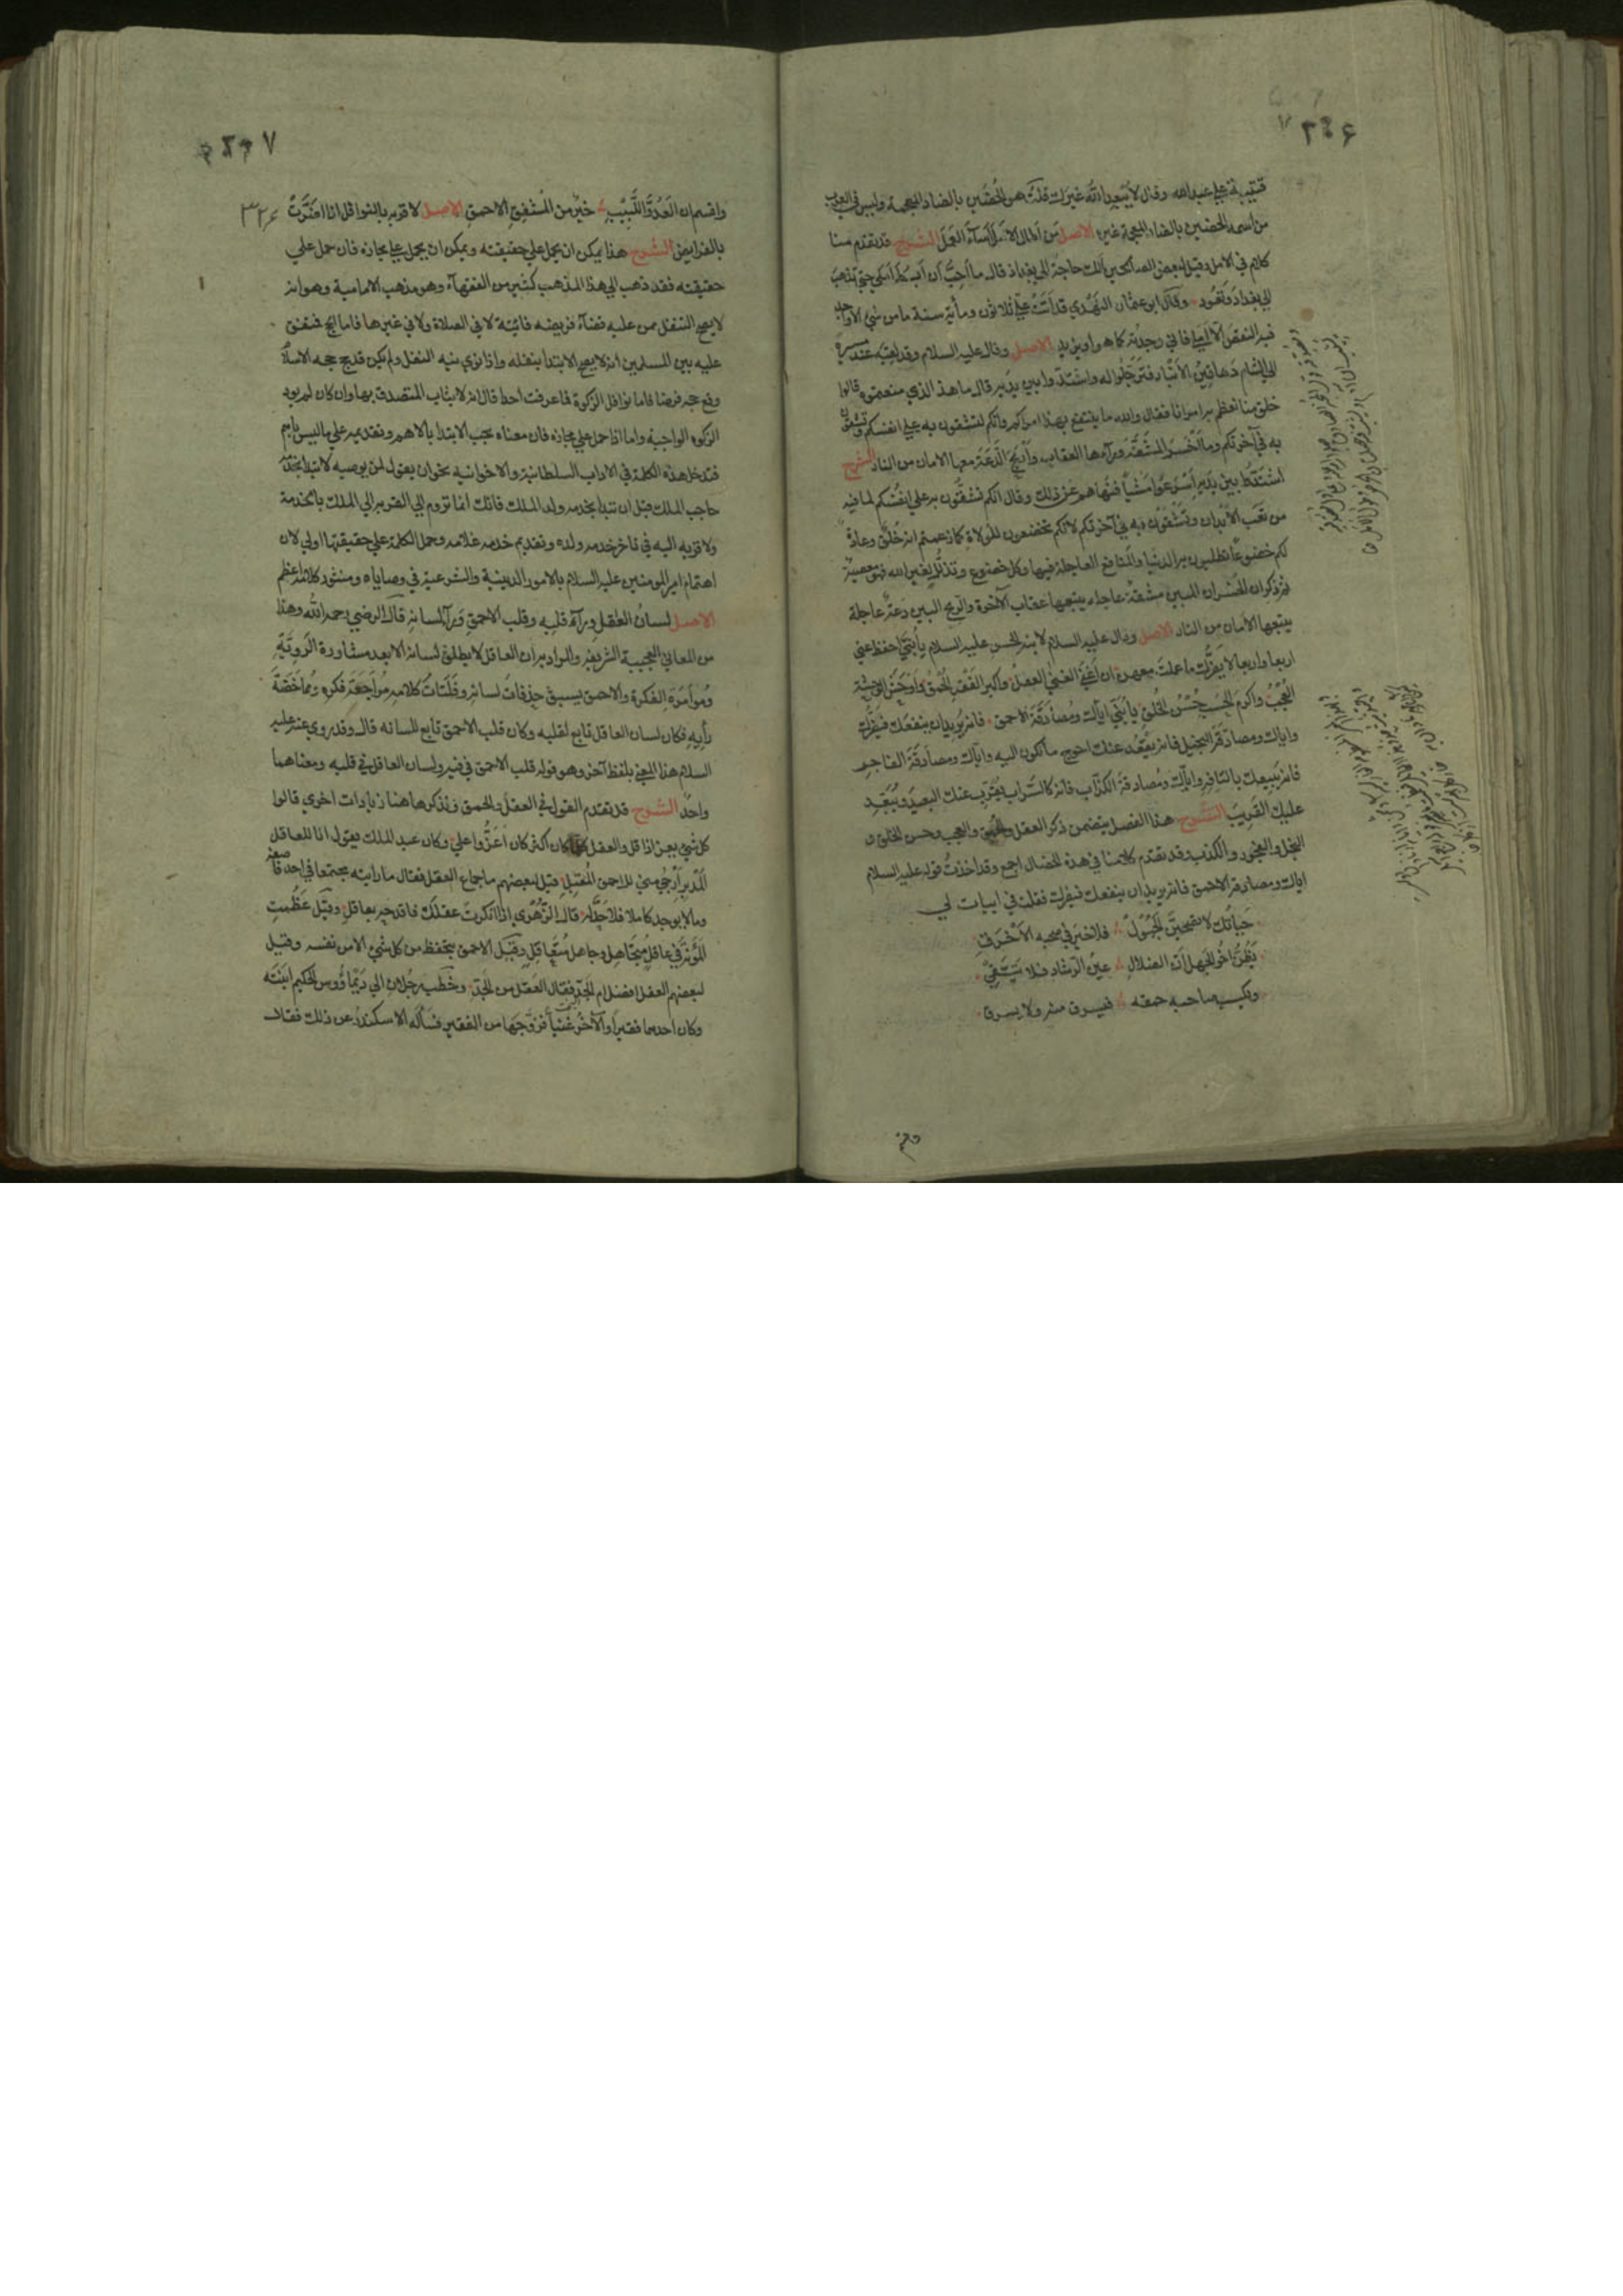 قتيبة علي عبدالله وقال لا يبعد انه غيرك قلت هو الحضين بالضاد المعجمة وليس في العرب
من اسمه الحضين بالضاد المعجمة غيره الاصل من اطال الامل اساء العمل الشرح قد تقدم منا
كلام في الامل وقيل لبعض الصالحين الك حاجة الي بغداذ قال ما احب ان ابسط املي حتي تذهب
الي بغداد وتعود وقال ابو عثمان النهدي قد اتت علي ثلاثون ومأية سنة ما من شيء الا واجد
فيه النقص الا املي فاني وجدته كما هو او يزيد الاصل وقال عليه السلام وقد لقيه عند مسيره
الي الشام دهاقين الانبار فترجلوا له واشتدوا بين يديه قال ما هذا الذي صنعتموه قالوا
خلق منا نعظم به امرانا فقال والله ما ينتفع بهذا امراكم وانكم لتشقون به علي انفسكم وتشقون
به في آخرتكم وما اخسر المشقة وراءها العقاب واربح الدعة معها الامان من النار الشرح
اشتدوا بين يديه اسرعوا مشيا فنهاهم عن ذلك وقال انكم تشقون به علي انفسكم لما فيه
من تعب الابدان وتشقون به في آخرتكم لانكم تخضعون للولاة كما زعمتم انه خلق وعادة
لكم خضوعا تطلبون به الدنيا والمنافع العاجلة فيها وكل خضوع وتذلل لغير الله فهو معصية
ثم ذكر ان الخسران المبين مشقة عاجلة يتبعها عقاب الآخرة والربح المبين دعة عاجلة
يتبعها الامان من النار الاصل وقال عليه السلام لابنه الحسن عليه السلام يا بني احفظ عني
اربعا واربعا لا يضرك ما عملت معهن ان اغني الغني العقل واكبر الفقر الحمق واوحش الوحشة
العجب واكرم الحسب حسن الخلق يا بني اياك ومصادقة الاحمق فانه يريد ان ينفعك فيضرك
واياك ومصادقة البخيل فانه يقعد عنك احوج ما تكون اليه واياك ومصادقة الفاجر
فانه يبيعك بالتافه واياك ومصادقة الكذاب فانه كالسراب يقرب عنك البعيد ويبعد
عليك القريب الشرح هذا الفصل يتضمن ذكر العقل والحمق والعجب وحسن الخلق و
البخل والفجور والكذب وقد تقدم كلامنا في هذه الخصال اجمع وقد اخذت قوله عليه السلام
اياك ومصادقة الاحمق فانه يريد ان ينفعك فيضرك فقلت في ابيات لي
حياتك لا تصحبن الجهول فلا خير في صحبة الاخرق
يظن اخو الجهل ان الضلال عين الرشاد فلا يتقي
ويكسب صاحبه حمقه فيسرق منه ولا يسرق
واقسم
واقسم ان العدو اللبيب خير من المشفق الاحمق الاصل لا قربة بالنوافل اذا اضرت
بالفرايض الشرح هذا يمكن ان يحمل علي حقيقته ويمكن ان يحمل علي مجازه فان حمل علي
حقيقته فقد ذهب الي هذا المذهب كثير من الفقهآء وهو مذهب الامامية وهو انه
لا يصح التنفل ممن عليه قضآء فريضة فائتة لا في الصلاة ولا في غيرها فاما الحج فمتفق
عليه بين المسلمين انه لا يصح الابتدا بنفله واذا نوي نية النفل ولم يكن قد حج حجة الاسلام
وقع حجه فرضا فاما نوافل الزكوة فما عرفت احدا قال انه لا يثاب المتصدق بها وان كان لم يود
الزكوة الواجبة واما اذا حمل علي مجازه فان معناه يجب الابتدا بالاهم وتقديمه علي ما ليس باهم
فتدخل هذه الكلمة في الاداب السلطانية والاخوانية نحو ان يقول لمن يوصيه لا تبدا بخدمة
حاجب الملك قبل ان تبدا بخدمة ولد الملك فانك انما تروم الي القربة الي الملك بالخدمة
ولا قربة اليه في تاخر خدمة ولده وتقديم خدمة غلامه وحمل الكلمة علي حقيقتها اولي لان
اهتمام امير المومنين عليه السلام بالامور الدينية والشرعية في وصاياه ومنثور كلامه اعظم
الاصل لسان العقل ورآء قلبه وقلب الاحمق ورآء لسانه قال الرضي رحمه الله وهذا
من المعاني العجيبة الشريفة والمراد به ان العاقل لا يطلق لسانه الا بعد مشاورة الروية
ومؤامرة الفكرة والاحمق يسبق حذفات لسانه وفلتات كلامه مراجعة فكره ومماخضة
رأيه فكان لسان العاقل تابع لقلبه وكان قلب الاحمق تابع للسانه قال وقد روي عنه عليه
السلام هذا المعني بلفظ آخر وهو قوله قلب الاحمق في فيه ولسان العاقل في قلبه ومعناهما
واحد الشرح قد تقدم القول في العقل والحمق ونذكر هاهنا زيادات اخري قالوا
كل شيء يعز اذا قل والعقل كلما كان اكثر كان اعز واعلي وكان عبد الملك يقول انا للعاقل
المدبر ارجي مني للاحمق المقبل قيل لبعضهم ما جماع العقل فقال ما رايته مجتمعا في احد فاصفه
وما لا يوجد كاملا فلا حد له قال الزهري اذا انكرت عقلك فاقدحه بعاقل وقيل عظمت
المؤنة في عاقل متجاهل وجاهل متعاقل وقيل الاحمق يتحفظ من كل شيء الا من نفسه وقيل
لبعضهم العقل افضل ام الجد فقال العقل من الجد وخطب رجلان الي ديماووس الحكيم ابنته
وكان احدهما فقيرا والآخر غنيا فزوجها من الفقير فسأله الاسكندر عن ذلك فقال